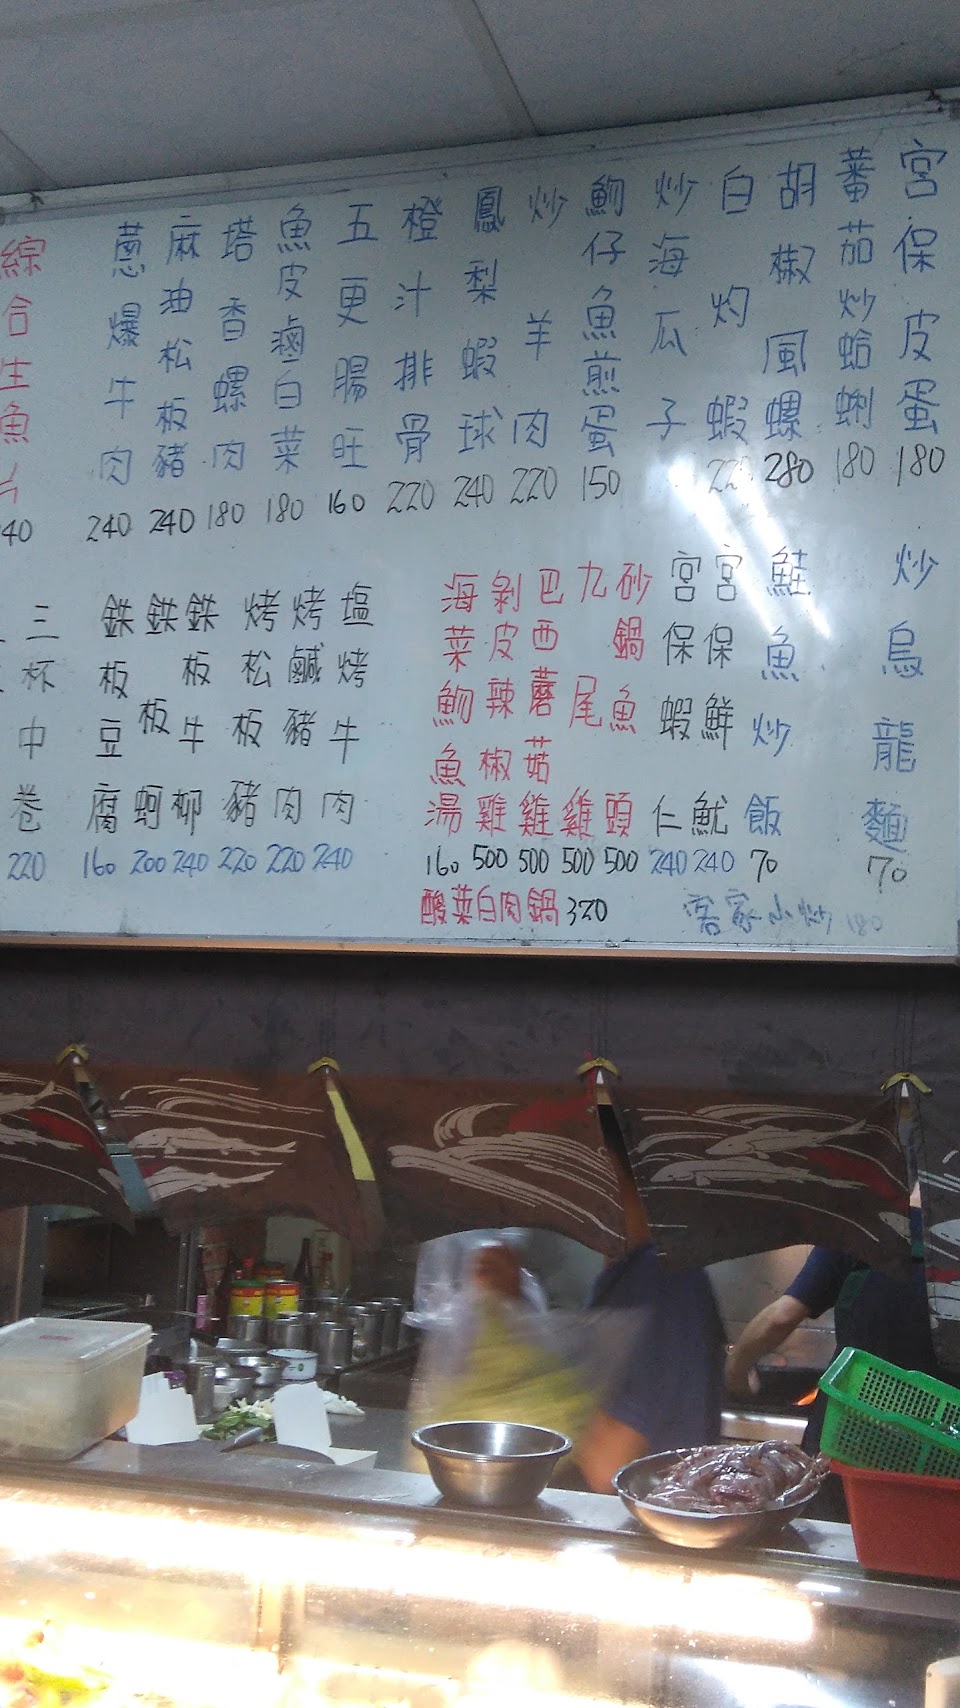 宮保皮蛋 180
蕃茄炒蛤蜊 180
胡椒風螺 280
白灼蝦
炒海瓜子
魩仔魚煎蛋 150
炒羊肉 220
鳳梨蝦球 240
橙汁排骨 220
五更腸旺 160
魚皮滷白菜 180
塔香螺肉 180
麻油松板豬 240
蔥爆牛肉 240
綜合生魚片
炒烏龍麵 70
鮭魚炒飯 70
宮保鮮魷 240
宮保蝦仁 240
砂鍋魚頭 500
九尾雞 500
巴西蘑菇雞 500
剝皮辣椒雞 500
海菜魩魚湯 160
塩烤牛肉 240
烤鹹豬肉 220
烤松板豬 220
鉄板牛柳 240
鉄板蚵 200
鉄板豆腐 160
三杯中卷 220
客家小炒 180
酸菜白肉鍋 320